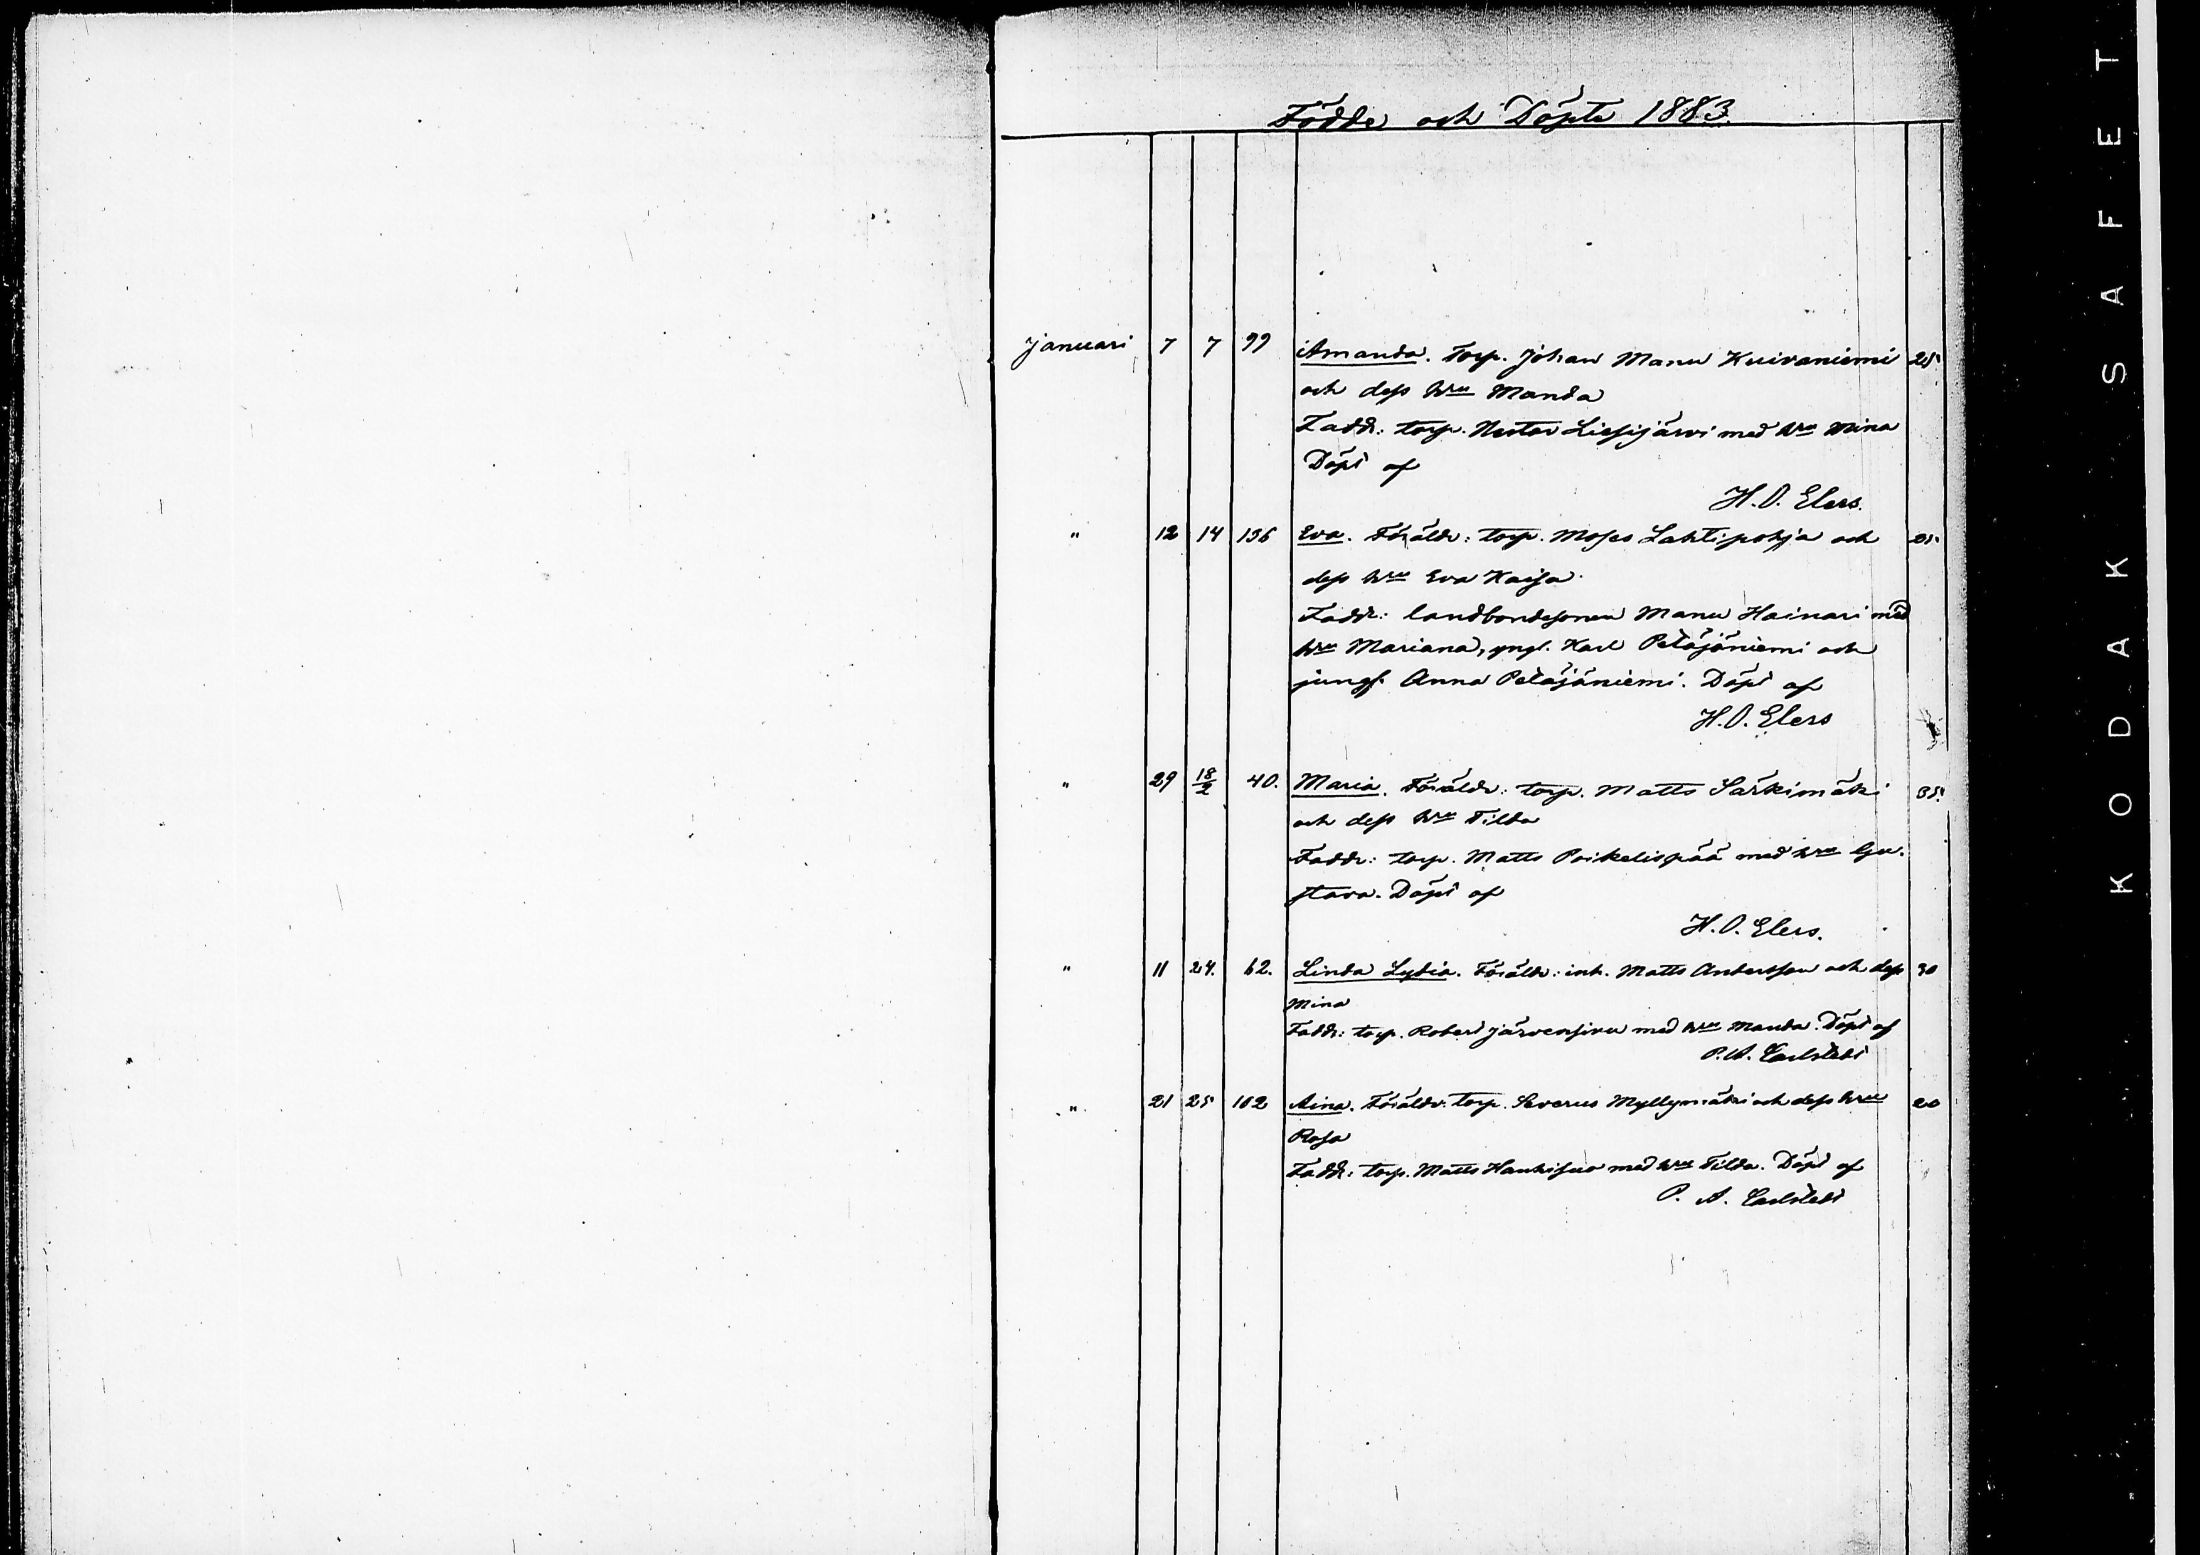 Födde och Döpte 1883.
Januari 7 7 99 Amanda. Torp. Johan Manu Kuivaniemi 25.
och dess hru Manda
Faddr: torp. Nestor Liesijärvi med hru Mina
Döpt af
H. O. Elers.
" 12 14 136 Eva. Föräldr: torp. Moses Lahtipohja och
dess hru Eva Kaisa
Faddr: landbondesonen Manu Hainari med
hru Mariana, yngl. Karl Petäjäniemi och
jungf. Anna Petäjäniemi. Döpt af
H. O. Elers
" 29 18/2 40. Maria. Föräldr: torp. Matts Särkimäki 35.
och dess hru Tilda
Faddr: torp. Matts Poikelispää med hru Gu-
stava. Döpt af
H. O. Elers.
" 11 24. 62. Linda Lydia. Föräldr: inh. Matts Andersson och dess 30
Mina
Faddr: torp. Robert Järvensivu med hru Manda. Döpt af
P. A. Carlstedt
" 21 25 102 Aina. Föräldr. torp. Severus Myllymäki och dess hru 20
Rosa
Faddr: torp. Matts Hauhisuo med hru Tilda. Döpt af
P. A. Carlstedt
KODAK SAFET